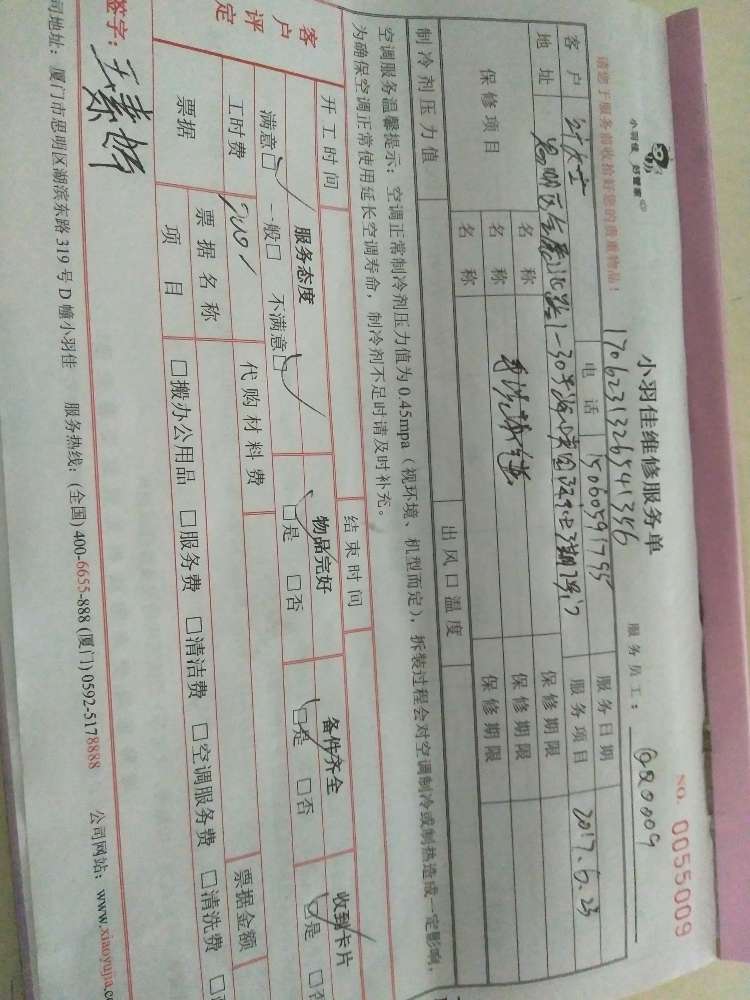 小羽佳 好管家
小羽佳维修服务单
NO. 0055009
请您于服务前收拾好您的贵重物品!
1706231326541356
服务员工:
客户
电话
15060591755
服务日期
2017.6.23
地址
服务项目
保修项目
名称
保修期限
名称
保修期限
名称
保修期限
制冷剂压力值
出风口温度
空调服务温馨提示:空调正常制冷剂压力值为0.45mpa(视环境、机型而定),拆装过程会对空调制冷或制热造成一定影响,
为确保空调正常使用延长空调寿命,制冷剂不足时请及时补充。
开工时间
结束时间
客户评定
服务态度
物品完好
备件齐全
收到卡片
满意□ 一般□ 不满意□
□是 □否
□是 □否
□是
工时费
200
代购材料费
票据金额
票据
票据名称
项目
□搬办公用品 □服务费 □清洁费 □空调服务费 □清洗费
签字:
司地址:厦门市思明区湖滨东路319号D幢小羽佳 服务热线:(全国)400-6655-888(厦门)0592-5178888 公司网站:www.xiaoyujia.c